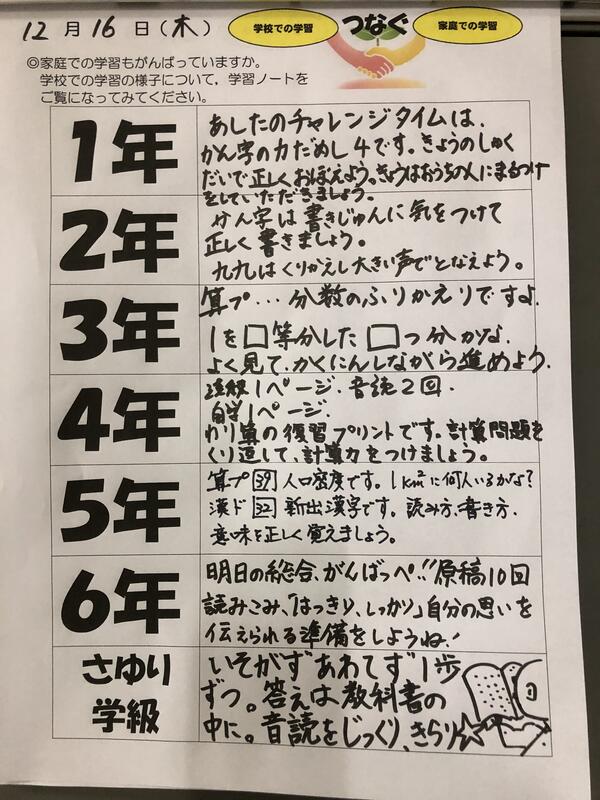 12月16日(木)
学校での学習 つなぐ 家庭での学習
◎家庭での学習もがんばっていますか。
学校での学習の様子について，学習ノートを
ご覧になってみてください。
1年
あしたのチャレンジタイムは、
かん字の力だめし4です。きょうのしゅく
だいで正しくおぼえよう。きょうはおうちの人にまるつけ
をしていただきましょう。
2年
かん字は書きじゅんに気をつけて
正しく書きましょう。
九九はくりかえし大きい声でとなえよう。
3年
算プ…分数のふりかえりですよ。
1を□等分した□つ分かな。
よく見て、かくにんしながら進めよう。
4年
漢練1ページ、音読2回、
自学1ページ、
わり算の復習プリントです。計算問題を
くり返して、計算力をつけましょう。
5年
算プ39人口密度です。1km²に何人いるかな？
漢ド32新出漢字です。読み方、書き方、
意味を正しく覚えましょう。
6年
明日の総合、がんばっぺ!!原稿10回
読みこみ、「はっきり、しっかり」自分の思いを
伝えられる準備をしようね!
さゆり
学級
いそがず あわてず 1歩
ずつ。答えは教科書の
中に。音読をじっくり、きらり☆